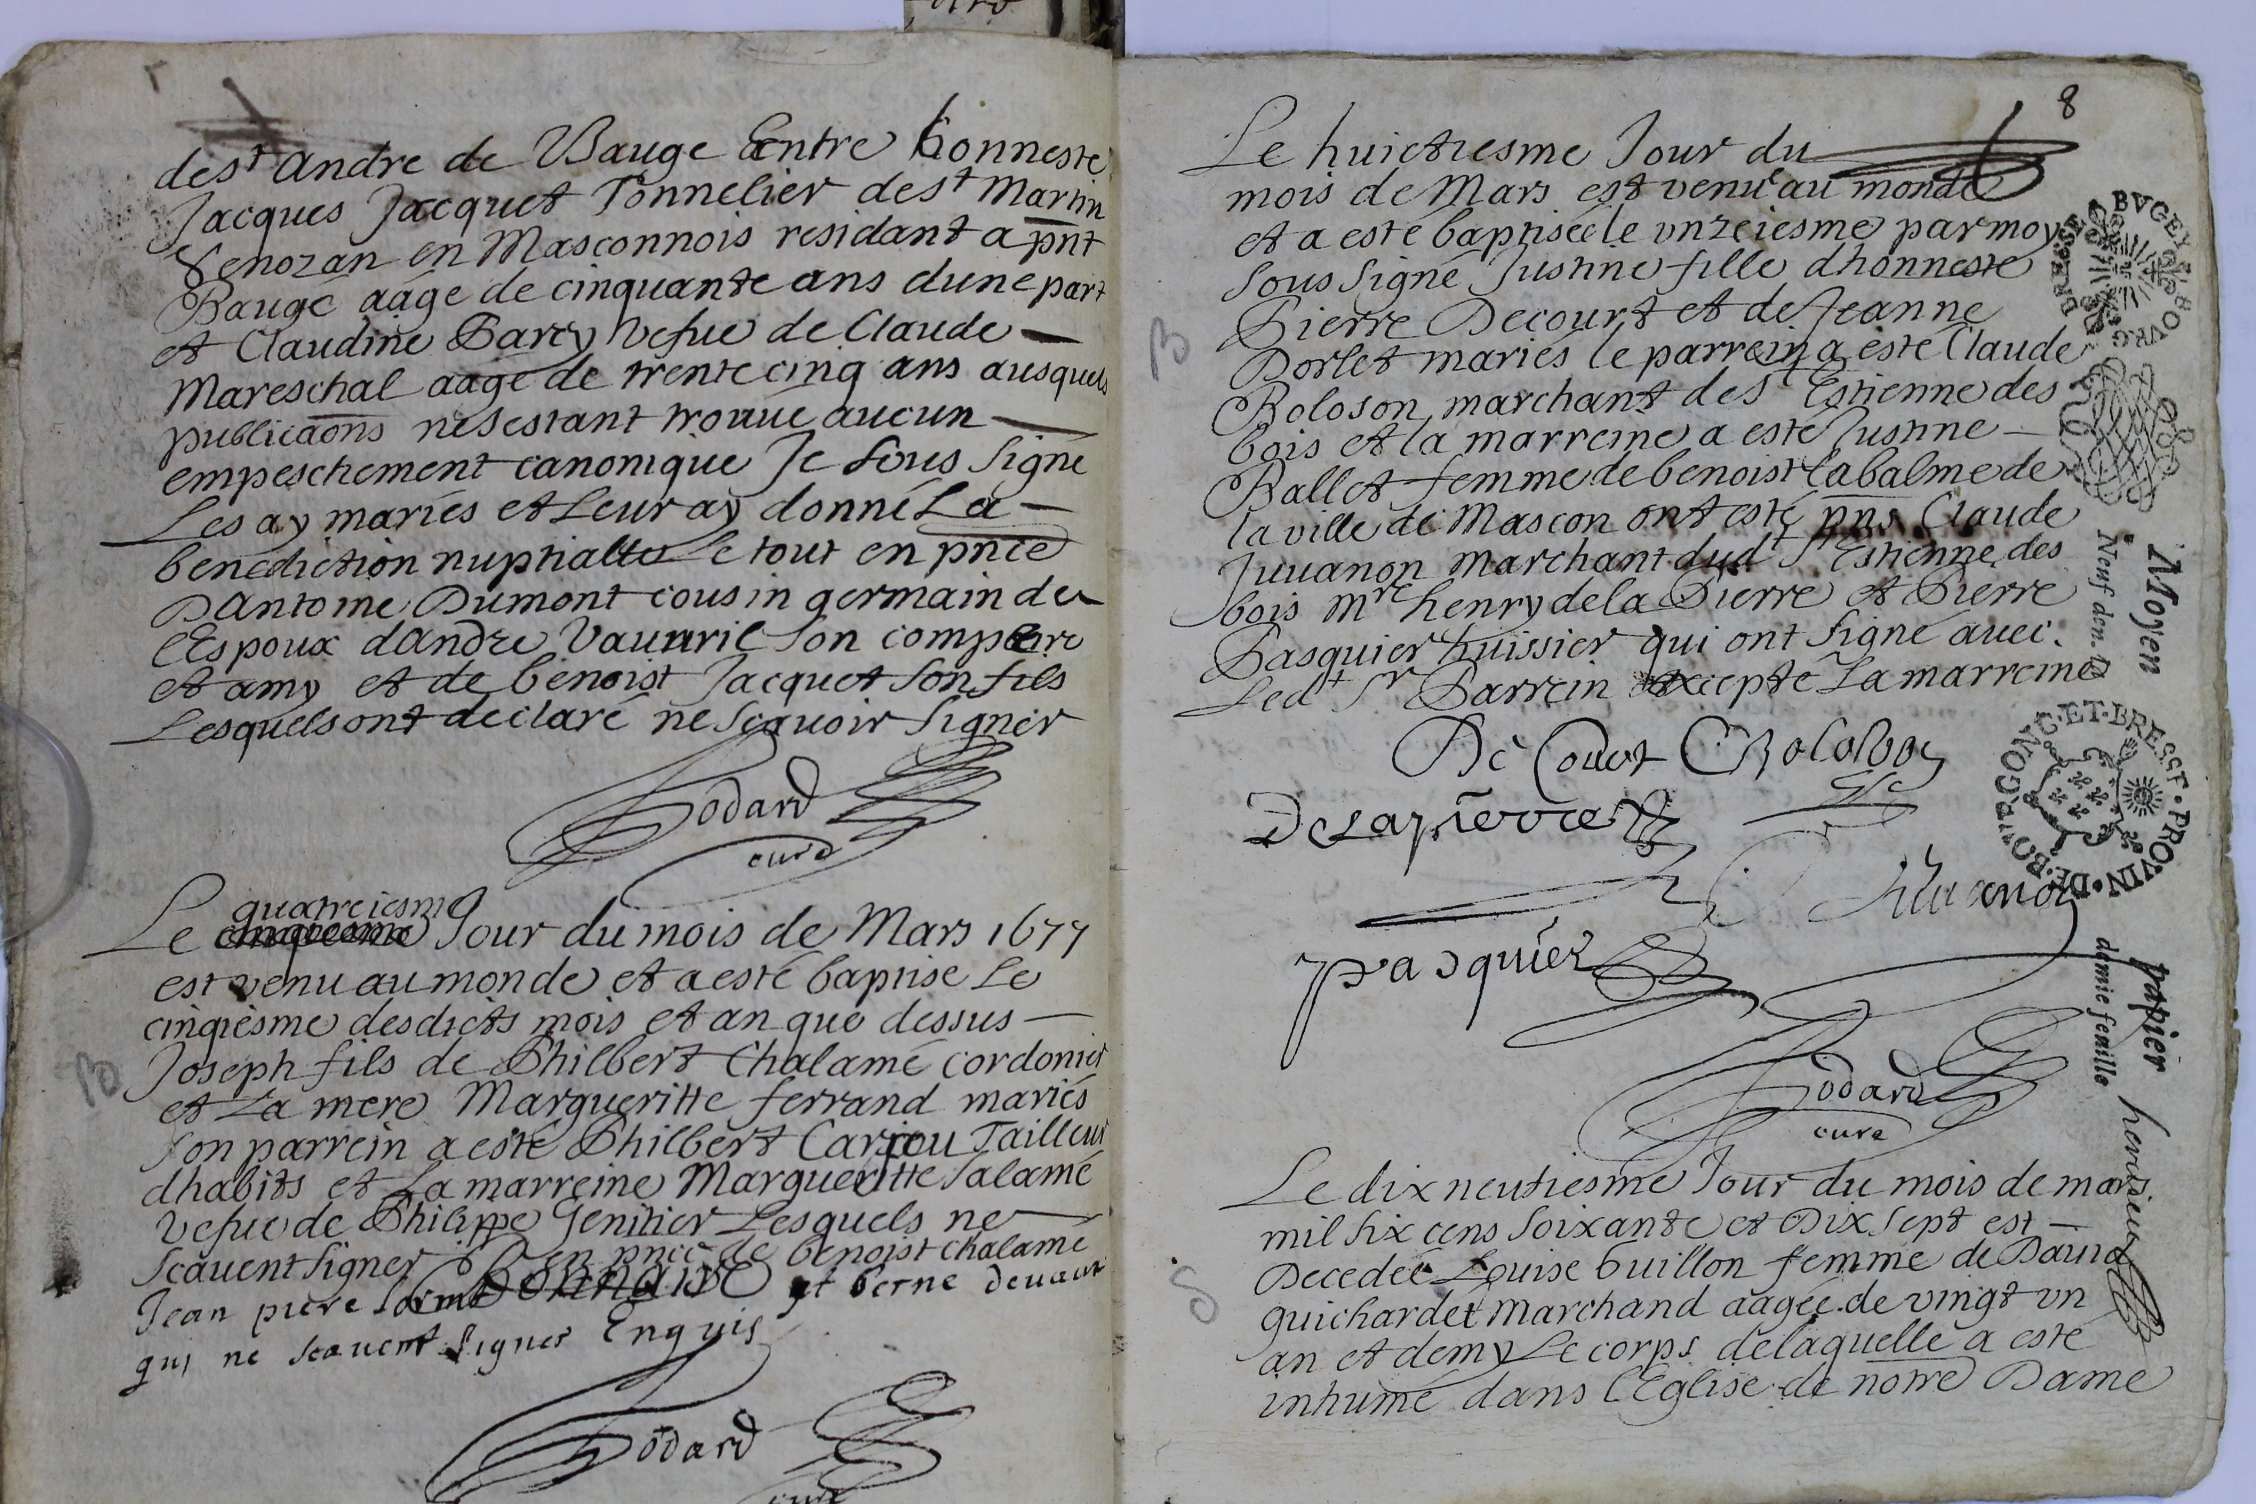 des.t Andre de Bauge Entre honneste
Jacques Jacquet Tonnelier des.t Martin
Senozan en Masconnois residant a pnt
Baugé aage de cinquante ans dune part
et Claudine Barcy Vefue de Claude
Mareschal aage de trente cinq ans ausquels
publicaons ne sestant trouué aucun
empeschement canonique Je sous signé
Les ay mariés et Leur ay donné La
benediction nuptialle Le tout en pnce
DAntoine Dumont cousin germain de
lEspoux dAndre Vauuril son compere
et amy et de benoist Jacquet son fils
Lesquels ont declaré ne scauoir signer
Godard
curé
quatreiesme
Le cinquiesme Jour du mois de Mars 1677
est venu au monde et a esté baptise Le
cinqiesme desdicts mois et an que dessus
B Joseph fils de Philbert Chalamé cordonier
et La mere Margueritte ferrand mariés
son parrein a esté Philbert Carjeu Tailleur
dhabits et La marreine Margueritte Salamé
Vefue de Philippe Genitier Lesquels ne
scauent signer en pnce de benoist chalamé
Jean piere et berne deuaux
qui ne scauent signer Enquis
Godard
curé
8
Le huictiesme Jour du
mois de Mars est venue au monde
et a esté baptisée le vnzeiesme par moy
sous signé Justine fille dhonneste
B Pierre Decourt et de Jeanne
Dorlet mariés le parrein a esté Claude
Boloson marchant de S.t Estienne des
bois et la marreine a esté Justine
Ballet femme de benoist Labalme de
la ville de Mascon ont esté pns Claude
Juuanon marchant dud.t S.t Estienne des
bois M.re henry de la Pierre et Pierre
Pasquier huissier qui ont signé auec
Led.t S.r Parrein excepté La marreine
De Court C Boloson
Delapierre
Juuanon
pasquier
Godard
curé
Le dix neufiesme Jour du mois de mars
mil six cens soixante et Dix sept est
S Decedée Louise Guillon femme de Dauid
Guichardet Marchand aagée de vingt vn
an et demy Le corps de laquelle a esté
inhumé dans lEglise de notre Dame
BVGEY
BOVRG
BRESSE
Moyen papier
Neuf den. demie feuille
PROVIN. DE BOVRGONG. ET BRESSE